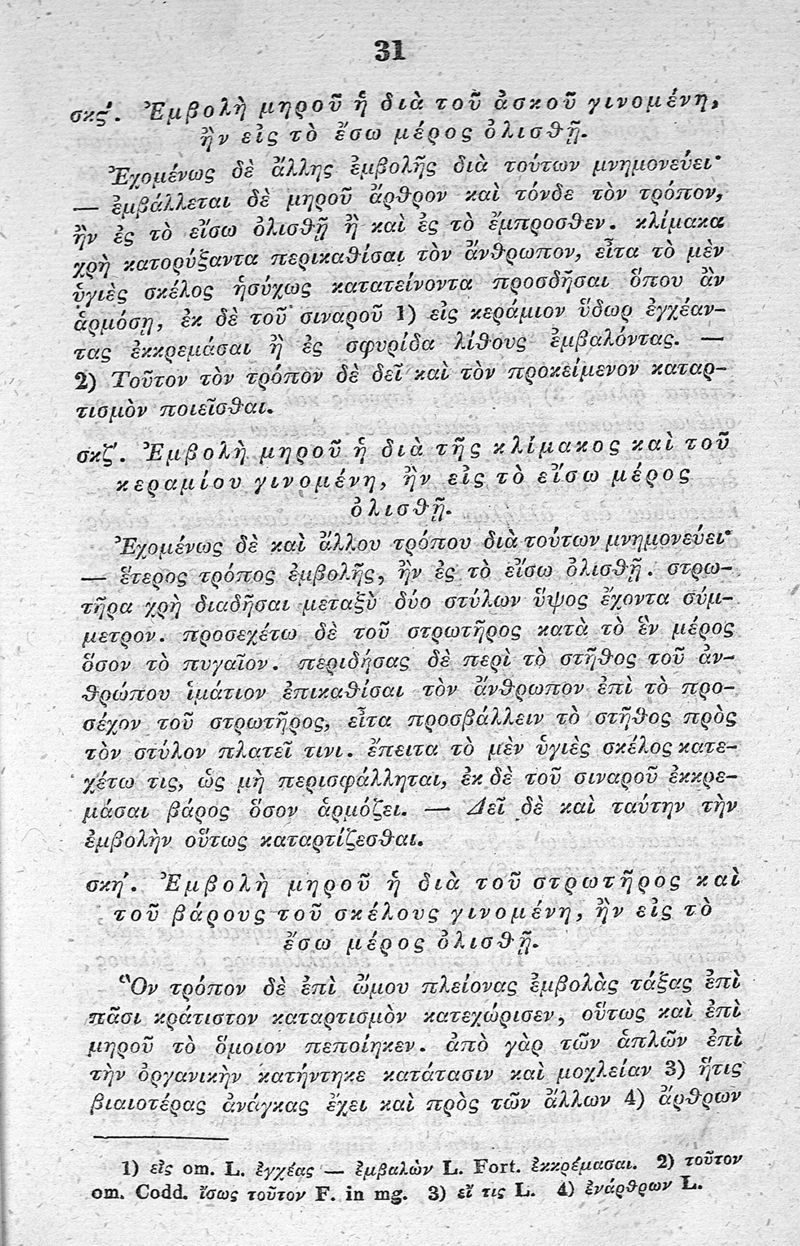 31
σκϛ΄. Ἐμβολὴ μηροῦ ἡ διὰ τοῦ ἀσκοῦ γινομένη,
ἢν εἰς τὸ ἔσω μέρος ὀλισθῇ.
Ἐχομένως δὲ ἄλλης ἐμβολῆς διὰ τούτων μνημονεύει·
— ἐμβάλλεται δὲ μηροῦ ἄρθρον καὶ τόνδε τὸν τρόπον,
ἢν ἐς τὸ εἴσω ὀλισθῇ ἢ καὶ ἐς τὸ ἔμπροσθεν. κλίμακα
χρὴ κατορύξαντα περικαθίσαι τὸν ἄνθρωπον, εἶτα τὸ μὲν
ὑγιὲς σκέλος ἡσύχως κατατείνοντα προσδῆσαι ὅπου ἂν
ἁρμόσῃ, ἐκ δὲ τοῦ σιναροῦ 1) εἰς κεράμιον ὕδωρ ἐγχέαν-
τας ἐκκρεμάσαι ἢ ἐς σφυρίδα λίθους ἐμβαλόντας. —
2) Τοῦτον τὸν τρόπον δὲ δεῖ καὶ τὸν προκείμενον καταρ-
τισμὸν ποιεῖσθαι.
σκζ΄. Ἐμβολὴ μηροῦ ἡ διὰ τῆς κλίμακος καὶ τοῦ
κεραμίου γινομένη, ἢν εἰς τὸ εἴσω μέρος
ὀλισθῇ.
Ἐχομένως δὲ καὶ ἄλλου τρόπου διὰ τούτων μνημονεύει·
— ἕτερος τρόπος ἐμβολῆς, ἢν ἐς τὸ εἴσω ὀλισθῇ. στρω-
τῆρα χρὴ διαδῆσαι μεταξὺ δύο στύλων ὕψος ἔχοντα σύμ-
μετρον. προσεχέτω δὲ τοῦ στρωτῆρος κατὰ τὸ ἓν μέρος
ὅσον τὸ πυγαῖον. περιδήσας δὲ περὶ τὸ στῆθος τοῦ ἀν-
θρώπου ἱμάτιον ἐπικαθίσαι τὸν ἄνθρωπον ἐπὶ τὸ προ-
σέχον τοῦ στρωτῆρος, εἶτα προσβάλλειν τὸ στῆθος πρὸς
τὸν στύλον πλατεῖ τινι. ἔπειτα τὸ μὲν ὑγιὲς σκέλος κατε-
χέτω τις, ὡς μὴ περισφάλληται, ἐκ δὲ τοῦ σιναροῦ ἐκκρε-
μάσαι βάρος ὅσον ἁρμόζει. — Δεῖ δὲ καὶ ταύτην τὴν
ἐμβολὴν οὕτως καταρτίζεσθαι.
σκη΄. Ἐμβολὴ μηροῦ ἡ διὰ τοῦ στρωτῆρος καὶ
τοῦ βάρους τοῦ σκέλους γινομένη, ἢν εἰς τὸ
ἔσω μέρος ὀλισθῇ.
Ὃν τρόπον δὲ ἐπὶ ὤμου πλείονας ἐμβολὰς τάξας ἐπὶ
πᾶσι κράτιστον καταρτισμὸν κατεχώρισεν, οὕτως καὶ ἐπὶ
μηροῦ τὸ ὅμοιον πεποίηκεν. ἀπὸ γὰρ τῶν ἁπλῶν ἐπὶ
τὴν ὀργανικὴν κατήντηκε κατάτασιν καὶ μοχλείαν 3) ἥτις
βιαιοτέρας ἀνάγκας ἔχει καὶ πρὸς τῶν ἄλλων 4) ἄρθρων
1) εἰς om. L. ἐγχέας — ἐμβαλὼν L. Fort. ἐκκρέμασαι. 2) τοῦτον
om. Codd. ἴσως τοῦτον F. in mg. 3) εἴ τις L. 4) ἐνάρθρων L.